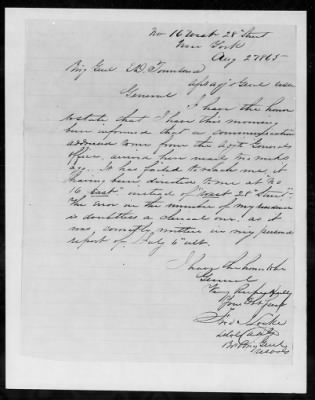 No 16 West 28" Street
New York
Aug 2 1865
Brig Genl E.D. Townsend
General
I have the honor
to state that I have this morning
been informed that a communication
addressed to me from the Agt's General's
office, arrived here mail two weeks
ago. It has failed to reach me, it
having been directed to me at "No
16 East" instead of "West 28" Street".
The error in the number of my residence
is doubtless a clerical one, as it
was correctly written in my personal
report of July 6" ult.
I have the honor to be
General
Very Respectfully
Your Obt Servt
Fred Locke